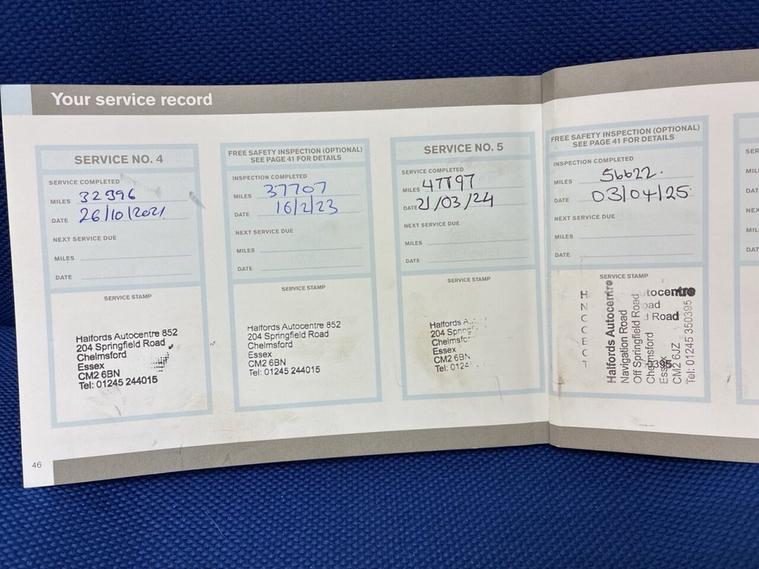 Your service record
SERVICE NO. 4
SERVICE COMPLETED
MILES 32996
DATE 26/10/2021
NEXT SERVICE DUE
MILES
DATE
SERVICE STAMP
Halfords Autocentre 852
204 Springfield Road
Chelmsford
Essex
CM2 6BN
Tel: 01245 244015
FREE SAFETY INSPECTION (OPTIONAL)
SEE PAGE 41 FOR DETAILS
INSPECTION COMPLETED
MILES 37707
DATE 16/2/23
NEXT SERVICE DUE
MILES
DATE
SERVICE STAMP
Halfords Autocentre 852
204 Springfield Road
Chelmsford
Essex
CM2 6BN
Tel: 01245 244015
SERVICE NO. 5
SERVICE COMPLETED
MILES 47797
DATE 21/03/24
NEXT SERVICE DUE
MILES
DATE
SERVICE STAMP
Halfords
204
Chelmsfo
Essex
CM2 6BN
Tel: 0124
FREE SAFETY INSPECTION (OPTIONAL)
SEE PAGE 41 FOR DETAILS
INSPECTION COMPLETED
MILES 56622.
DATE 03/04/25
NEXT SERVICE DUE
MILES
DATE
SERVICE STAMP
Halfords Autocentre
Navigation Road
Off Springfield Road
Chelmsford
Essex
CM2 6JZ
Tel: 01245 350395
46